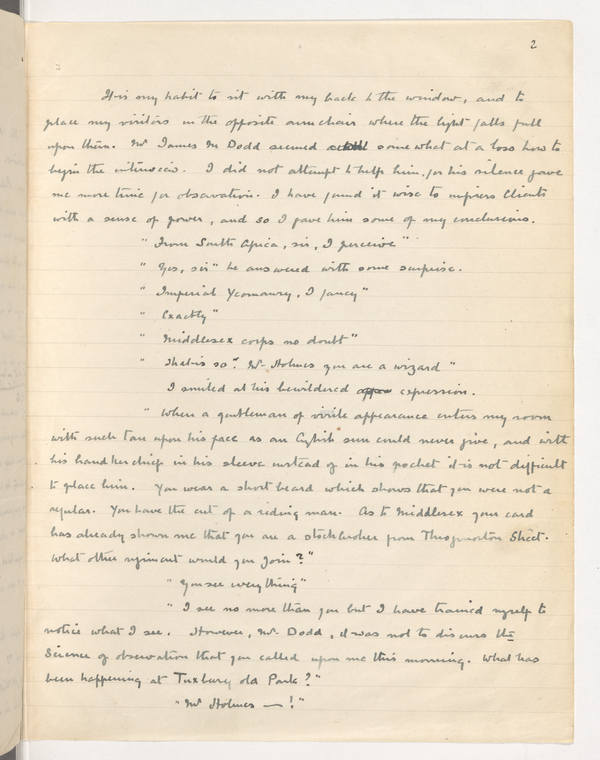 2
It is my habit to sit with my back to the window, and to
place my visitors in the opposite armchair where the light falls full
upon them. Mr James M Dodd seemed somewhat at a loss how to
begin the interview. I did not attempt to help him, for his silence gave
me more time for observation. I have found it wise to impress Clients
with a sense of power, and so I gave him some of my conclusions.
" From South Africa, sir, I perceive "
" Yes, sir " he answered with some surprise.
" Imperial Yeomanry, I fancy "
" Exactly "
" Middlesex corps no doubt "
" That is so ". Mr Holmes you are a wizard "
I smiled at his bewildered expression.
" When a gentleman of virile appearance enters my room
with such tan upon his face as an English sun could never give, and with
his handkerchief in his sleeve instead of in his pocket it is not difficult
to place him. You wear a short beard which shows that you were not a
regular. You have the cut of a riding man. As to Middlesex your card
has already shown me that you are a stockbroker from Throgmorton Street.
What other regiment would you join ? "
" You see everything "
" I see no more than you but I have trained myself to
notice what I see. However, Mr. Dodd, it was not to discuss the
Science of observation that you called upon me this morning. What has
been happening at Tuxbury old Park ? "
" Mr Holmes — ! "